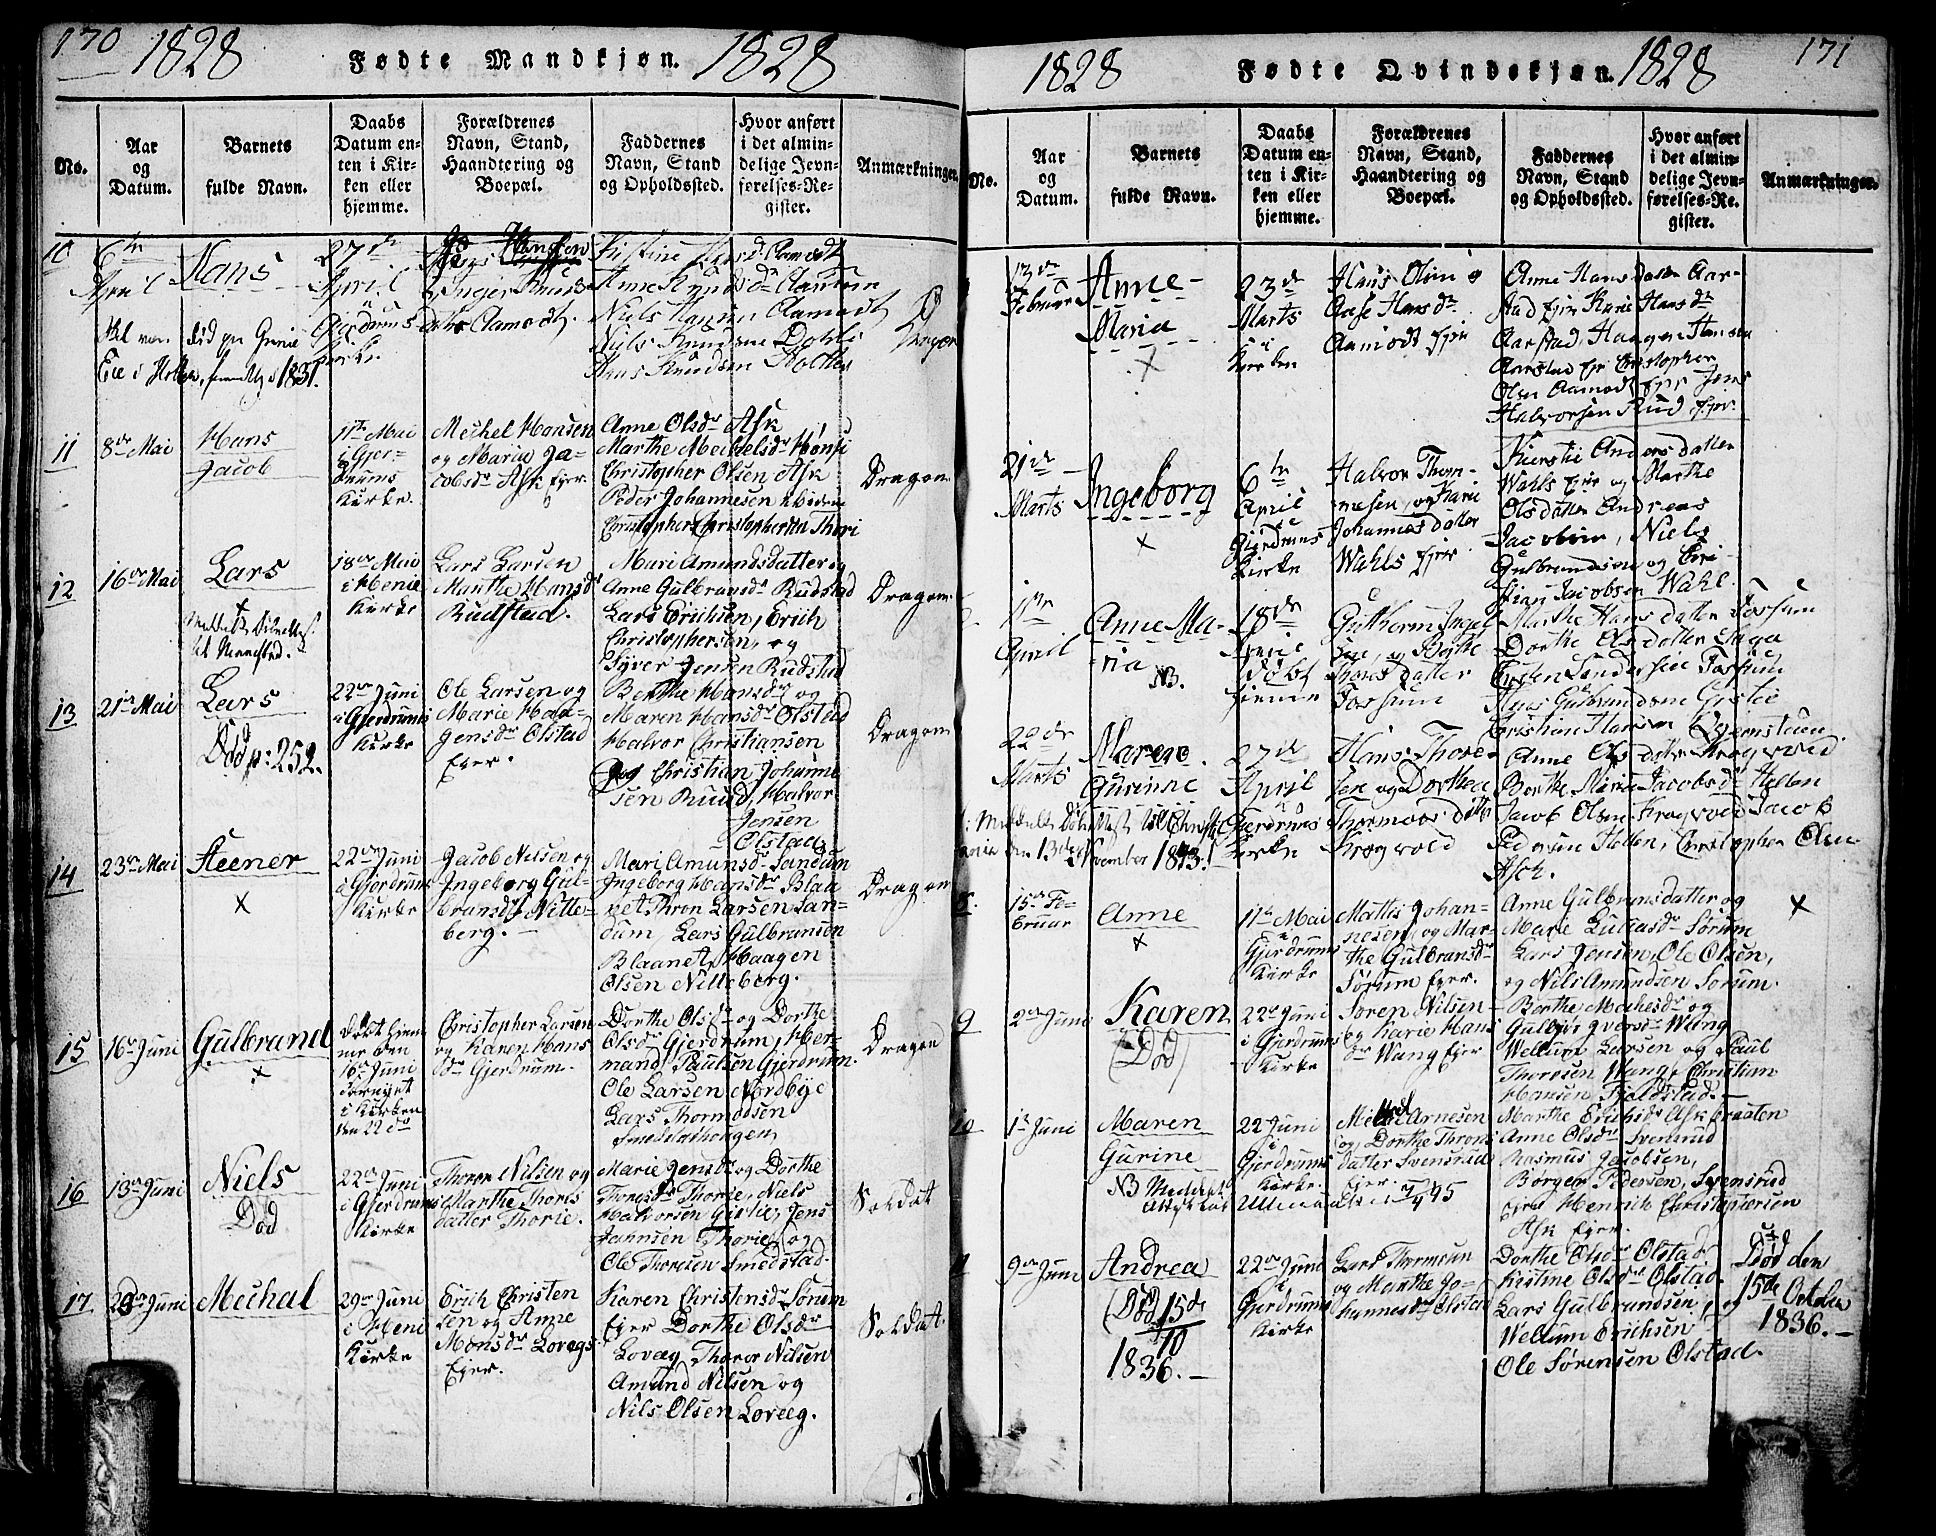 170 1828 Fødte Mandkjøn. 1828
No.
Aar
og
Datum.
Barnets
fulde Navn.
Daabs
Datum en-
ten i Kir-
ken eller
hjemme.
Forældrenes
Navn, Stand,
Haandtering og
Boepæl.
Faddernes
Navn, Stand
og Opholdssted.
Hvor anført
i det almin-
delige Jevn-
førelses-Re-
gister.
Anmærkninger.
10
6te
April
Hans
27de
April
i
Gjerdrums
Kirke.
Inger Knuds-
datter Aamodt.
Kistine Aamodt
Anne Knudsdr
Niels Hansen Aamodt
Niels Knudsen Dahli
Hans Knudsen Holter
1831.
11
8de Mai
Hans
Jacob
11te Mai
i Gjer-
drums
Kirke.
Mechel Hansen
og Maria Ja-
cobsdr Ask Ejer.
Anne Olsdr Ask
Marthe Mechelsdr Hønsi
Christopher Olsen Ask
Peder Johannesen ibidem
Christopher Christophersen Thori
Dragon
12
16de Mai
Lars
18de Mai
i Henie
Kirke
Lars Larsen
Marthe Hansdr
Rudstad.
Mari Amundsdatter og
Anne Gulbransdr Rudstad
Lars Erichsen, Erich
Christophersen, og
Syver Jensen Rudstad
Dragon
13
21de Mai
Lars
Død p: 252.
22de Juni
i Gjerdrums
Kirke
Ole Larsen og
Marie Haa-
gensdr Olstad
Ejer.
Berthe Hansdr og
Maren Hansdr Olstad
Halvor Christiansen
og Christian Johanne-
sen Ruud, Halvor
Jensen
Olstad
Dragon
14
23de Mai
Steener
X
22de Juni
i Gjerdrums
Kirke
Jacob Nilsen og
Ingeborg Gul-
bransdr Nitte-
berg.
Mari Amunsdr Sandum
Ingeborg Hansdr Blaa-
net Thron Larsen San-
dum, Lars Gulbransen
Blaanet, Haagen
Olsen Nitteberg.
Dragon
15
16de Juni
Gulbrand
X
Døbt hjem-
me den
16de Juni
i Kirken
den 22de
Christopher Larsen
og Karen Hans
dr Gjerdrum.
Dorthe Olsdr og Dorthe
Olsdr Gjerdrum, Her-
mand Paulsen Gjerdrum.
Ole Larsen Nordbye
Lars Thormodsen
Smedstadhougen
Dragon
16
13de Juni
Niels
Død
22de Juni
i Gjerdrums
Kirke
Thoron Nilsen og
Marthe Thores
datter Thorie.
Marie Jensdr og Dorthe
Thoresdr Thorie, Niels
Halvorsen Gistie, Jens
Jahnsen Thorie, og
Ole Thoresen Smedstad.
Soldat
17
23de Juni
Mechal
29de Juni
i Heni
Kirke
Erich Christen
sen og Anne
Monsdr Loveg
Ejer.
Karen Christensdr Sørum
Ejer Dorthe Olsdr
Loveg Thoron Nilsen
Amund Nilsen og
Nils Olsen Loveeg.
Soldat
1828 Fødte Qvindekjøn. 1828 171
No.
Aar
og
Datum.
Barnets
fulde Navn.
Daabs
Datum en-
ten i Kir-
ken eller
hjemme.
Forældrenes
Navn, Stand,
Haandtering og
Boepæl.
Faddernes
Navn, Stand
og Opholdssted.
Hvor anført
i det almin-
delige Jevn-
førelses-Re-
gister.
Anmærkninger.
13de
Februar
Anne
Maria
X
23de
Marts
i
Kirken
Hans Olsen og
Aase Hansdr
Aamodt Ejer
Anne Hansdatter Aar-
stad Ejer Karie Hansdr
Aarstad Haagen Hansen
Aarstad Ejer Christopher
Olsen Aamodt Ejer Jens
Halvorsen Rud Ejer.
21de
Marts
Ingeborg
X
6te
April
i
Gjerdrums
Kirke
Halvor Thom-
mesen, og Karie
Johannesdatter
Wahls Ejer.
Kierstie Andersdatter
Wahls Ejer og Marthe
Olsdatter Andreas
Jacobsen, Niels
Gulbrandsen og Chri-
stian Jacobsen Wahl.
11te
April
Anne Ma-
ria
NB.
18de
April
døbt
hjemme
Gutherm Ingel
sen, og Berthe
Thoresdatter
Fossum
Marthe Hansdatter Fossum
Dorthe Olsdatter
Fossum
Hans Gulbrandsen Gistie
Christian Hansen
22de
Marts
Maren
Gurinie
27de
April
i
Gjerdrums
Kirke
Hans Thore-
sen og Dorthea
Thormoosdatter
Krogvold
Anne Olsdatter Krogvold
Berthe Maria Jacobsdr Hellen
Jacob Olsen Krogvold Jacob
Pedersen Hellen, Christopher Olsen
Asch.
den 13de November 1843.
8.
15de Fe-
bruar
Anne
X
11te Mai
i
Gjerdrums
Kirke
Mattis Johan-
nesen, og Mar-
the Gulbransdr
Sørum Ejer.
Anne Gulbransdatter og
Marie Lucasdr Sørum
Lars Jensen, Ole Olsen,
og Nils Amundsen Sørum.
X
9
2de Juni
Karen
(Død)
22de Juni
i Gjerdrums
Kirke
Søren Nilsen
og Karie Hans
dr Wang Ejer
Berthe Mechelsdr og
Wang
Wellum Larsen og Paul
Thoresen Wang, Christian
Hansen Fjeldstad.
10
1st Juni
Maren
Gurine
NB Meddelt
22 Juni
i
Gjerdrums
Kirke.
Michel Arnesen
og Dorthe Throns
datter Svensrud
Ejer.
Marthe Erichsdr Askbraaten
Anne Olsdr Svensrud
Rasmus Jacobsen,
Børger Pedersen, Svensrud
Ejer Henrich Christophersen
Ask Ejer.
11
9de Juni
Andrea
(Død 15de
10
1836.
22de Juni
i
Gjerdrums
Kirke
Lars Thormsen
og Marthe Jo-
hannesdr Olstad
Dorthe Olsdr Olstad,
Kistine Olsdr Olstad.
Lars Gulbrandsen, og
Wellum Erichsen
Ole Sørensen Olstad.
Død den
15de October
1836.